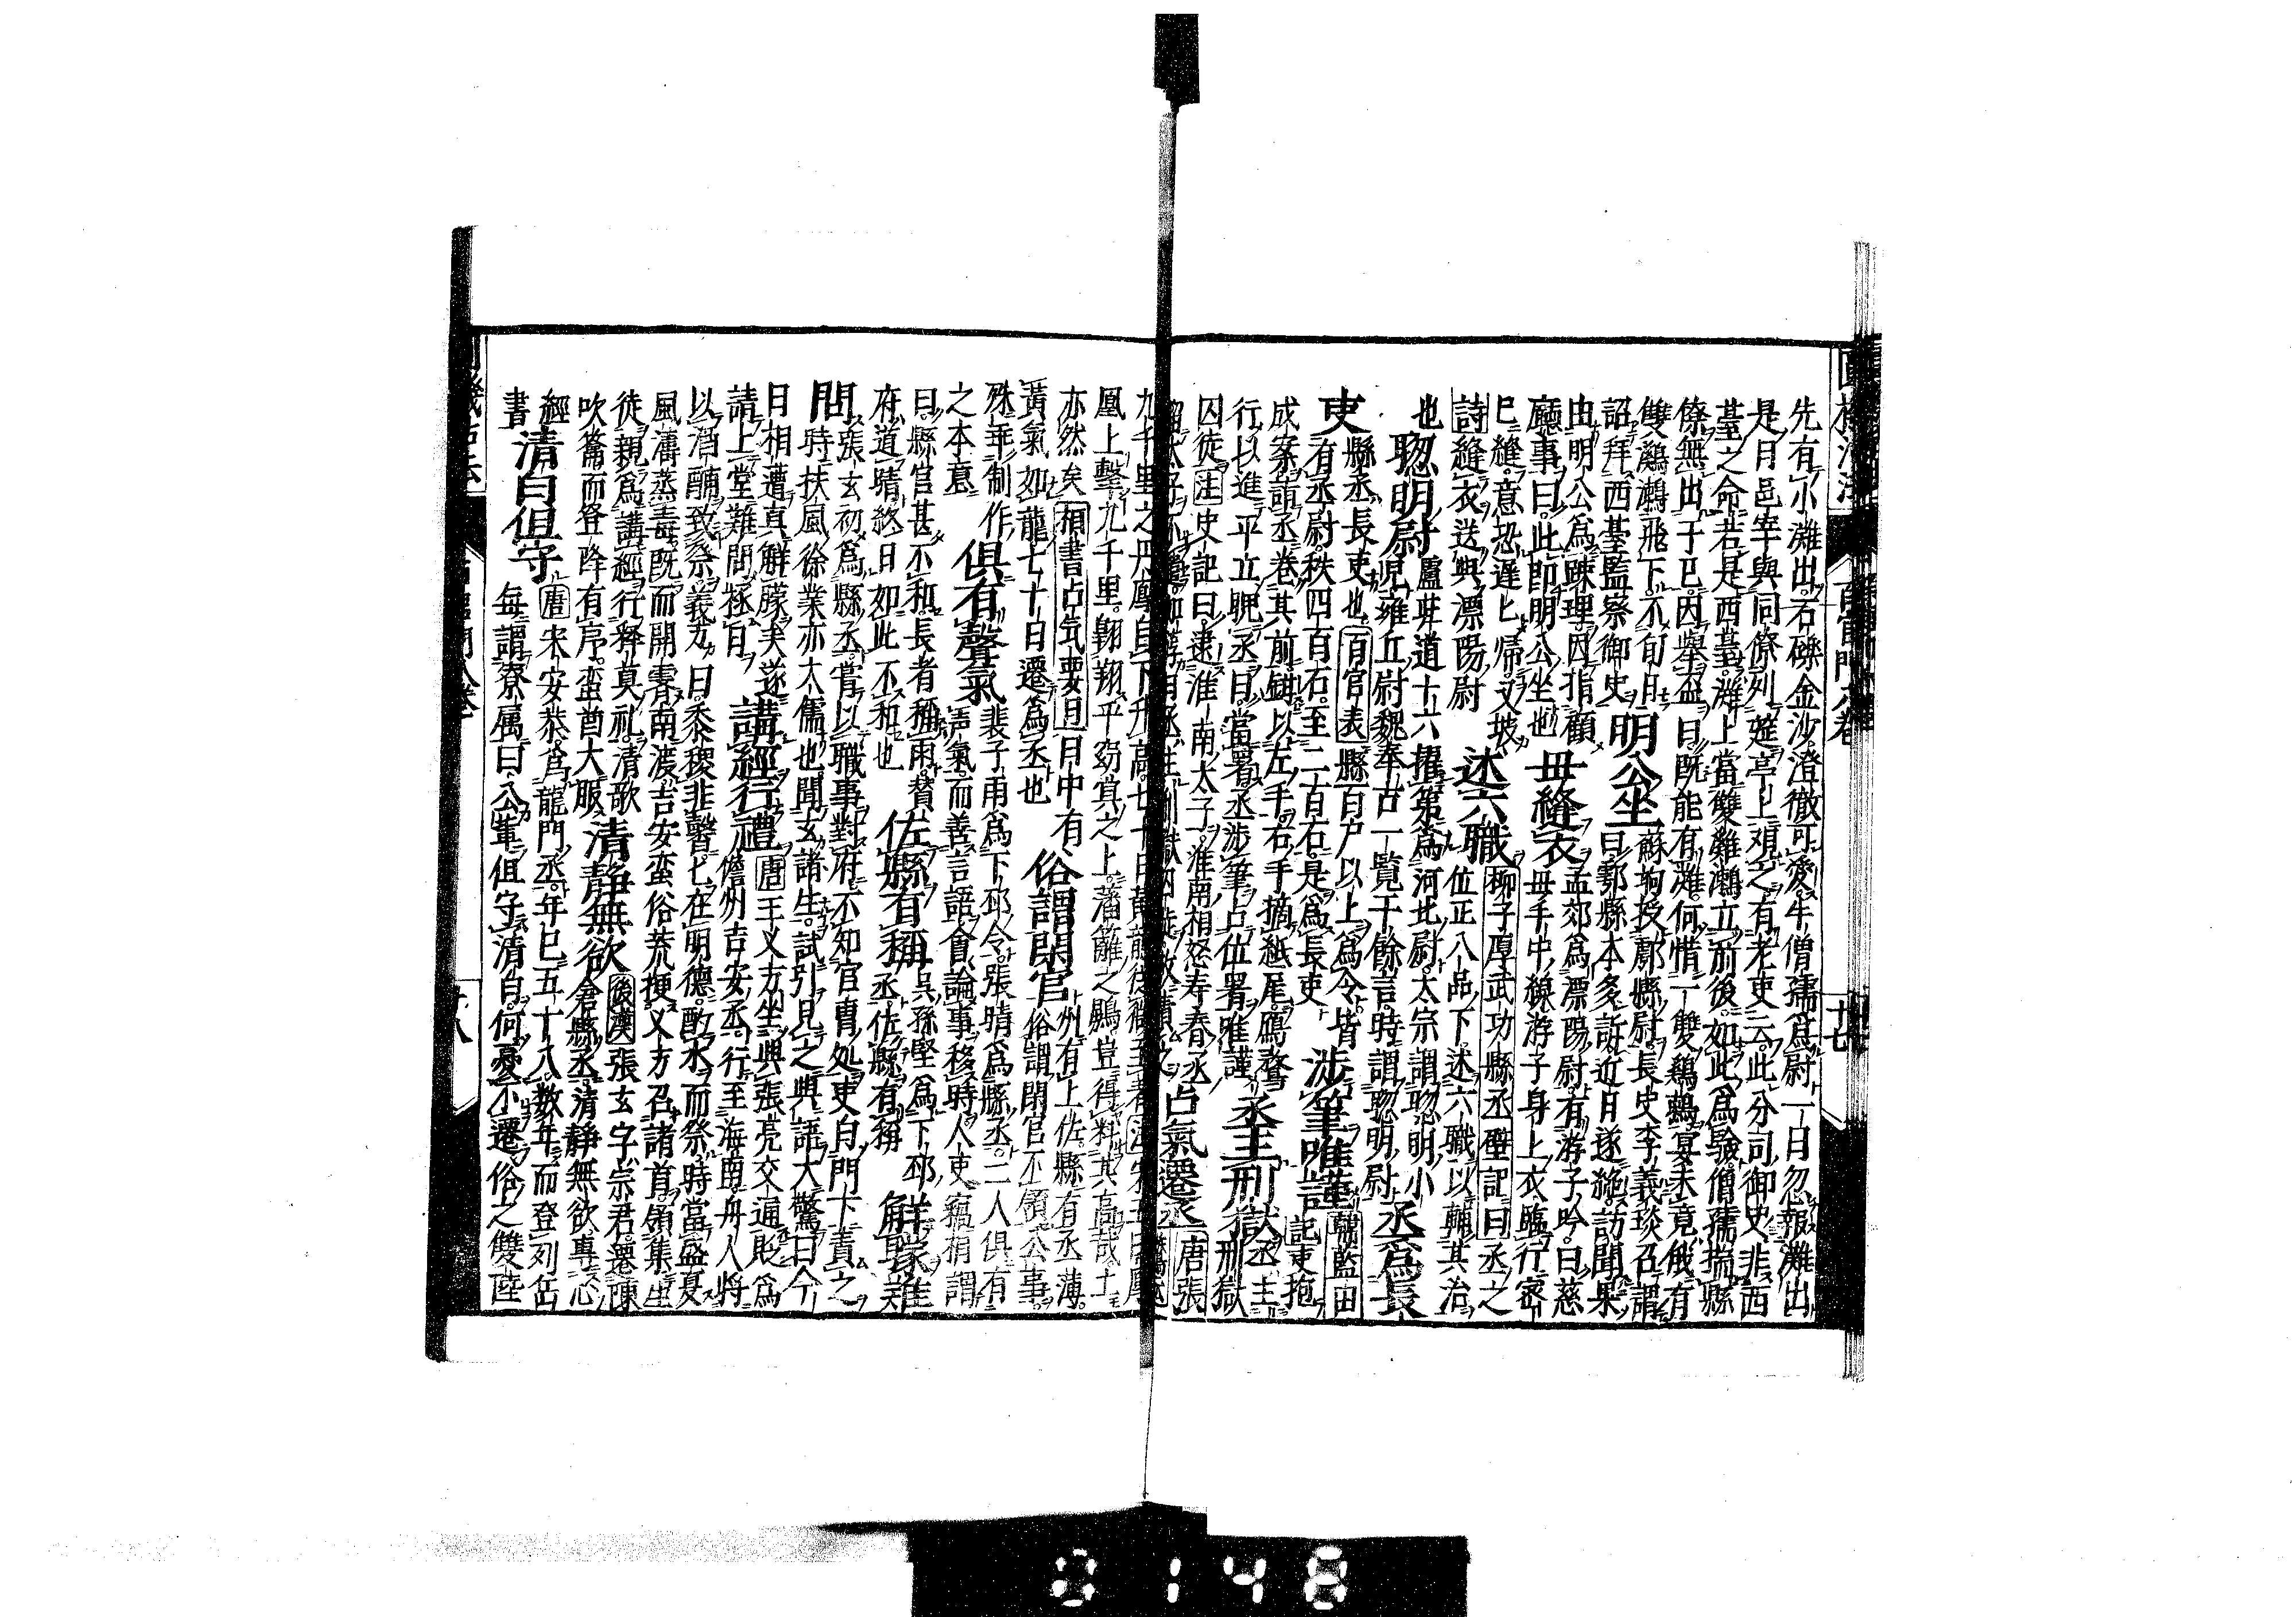 先有小灘出石礫金沙澄徹可愛牛僧孺爲尉一日忽報灘出
是日邑宰與同僚列筵亭上觀之有老吏云此分司御史非西
臺之命若是西臺灘上當雙雞鶒立前後如此爲驗僧孺揣縣
僚無出于已因舉盃曰既能有灘何惜一雙鸂鶒宴未竟俄有
雙鸂鶒飛下不旬日
詔拜西臺監察御史 明公坐 蘇垧授鄠縣尉長史李義琰召謂
曰鄠縣本多訴近日遂絶訪聞果
由明公爲踈理因指顧
廳事曰此即明公坐也 毋縫衣 孟郊爲漂陽尉有游子吟曰慈
毋手中線游子身上衣臨行宻
巳縫意恐遲匕帰又坡
詩縫衣送與漂陽尉 述六職 柳子厚武功縣丞壁記曰丞之
位正八品下述六職以輔其治
也 聦明尉 盧莊道十六擢第爲河北尉太宗謂聦明小
兒雍丘尉魏奉古一覧千餘言時謂聦明尉 丞爲長
吏 縣丞長吏也百官表縣百户以上爲令皆
有丞尉秩四百石至二百石是爲長吏 渉筆唯謹 韓藍田
記吏抱
成案詣丞卷其前鉗以左手右手摘紙尾鴈鶩
行以進平立睨丞曰當署丞渉筆占位署唯謹 丞主刑獄 丞主
刑獄
囚徒注史記曰逮淮南太子淮南相怒寿春丞
占氣遷丞 唐張
凰上擊九千里翺翔平窈冥之上藩籬之鷃豈得料其高哉士
亦然矣 相書占気要曰日中有
黃氣如龍七十日遷爲丞也 俗謂閑官 州有上佐縣有丞薄
俗謂閑官不領公事
殊乖制作
之本意 倶有聲氣 裴子雨爲下邳令張晴爲縣丞二人倶有
声氣而善言語會論事移時人吏竊相謂
曰縣官甚不和長者稱雨賛
府道晴終日如此不和也 佐縣有稱 呉孫堅爲下邳
丞佐縣有稱 解矇難
問 張玄初爲縣丞嘗以職事對府不知官曹処吏白門下責之
時扶風徐業亦大儒也聞玄諸生試引見之與語大驚曰今
日相遭真解矇矣遂
請上堂難問極日 講經行禮 唐王义方坐與張亮交通貶爲
儋州吉安丞行至海南舟人將
以酒酺致祭義方曰黍稷非馨匕在明德酌水而祭時當盛夏
風濤蒸毒既而開霽南渡吉安蛮俗荒梗义方召諸首領集生
徒親爲講經行釋奠礼清歌
吹籥而登降有序蛮酋大服 清靜無欲 後漢張玄字宗君遷陳
倉縣丞清靜無欲專心
經
書 清白但守 唐宋安恭爲龍門丞年巳五十八数年而登列岳
毎謂寮属曰公輩但守清白何憂不遷俗之雙陸
十七
十八
0148